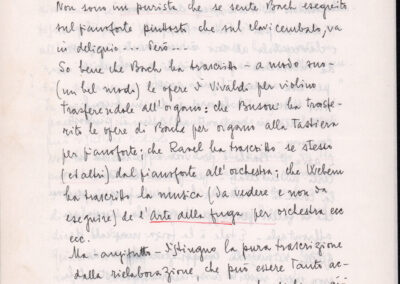 Non sono un purista che se sente Bach eseguito
sul pianoforte piuttosto che sul clavicembalo, va
in deliquio --- Però ---
So bene che Bach ha trascritto - a modo suo -
(un bel modo) le opere di Vivaldi per violino
trasferendole all'organo: che Busoni ha trasfe-
rito le opere di Bach per organo alla tastiera
per pianoforte; che Ravel ha trascritto se stesso
(ed altri) dal pianoforte all'orchestra; che Webern
ha trascritto la musica (da vedere e non da
eseguire) de l'arte della fuga per orchestra ecc
ecc.
Ma - anzitutto - distinguo la pura trascrizione
dalla rielaborazione, che può essere tanto ac-